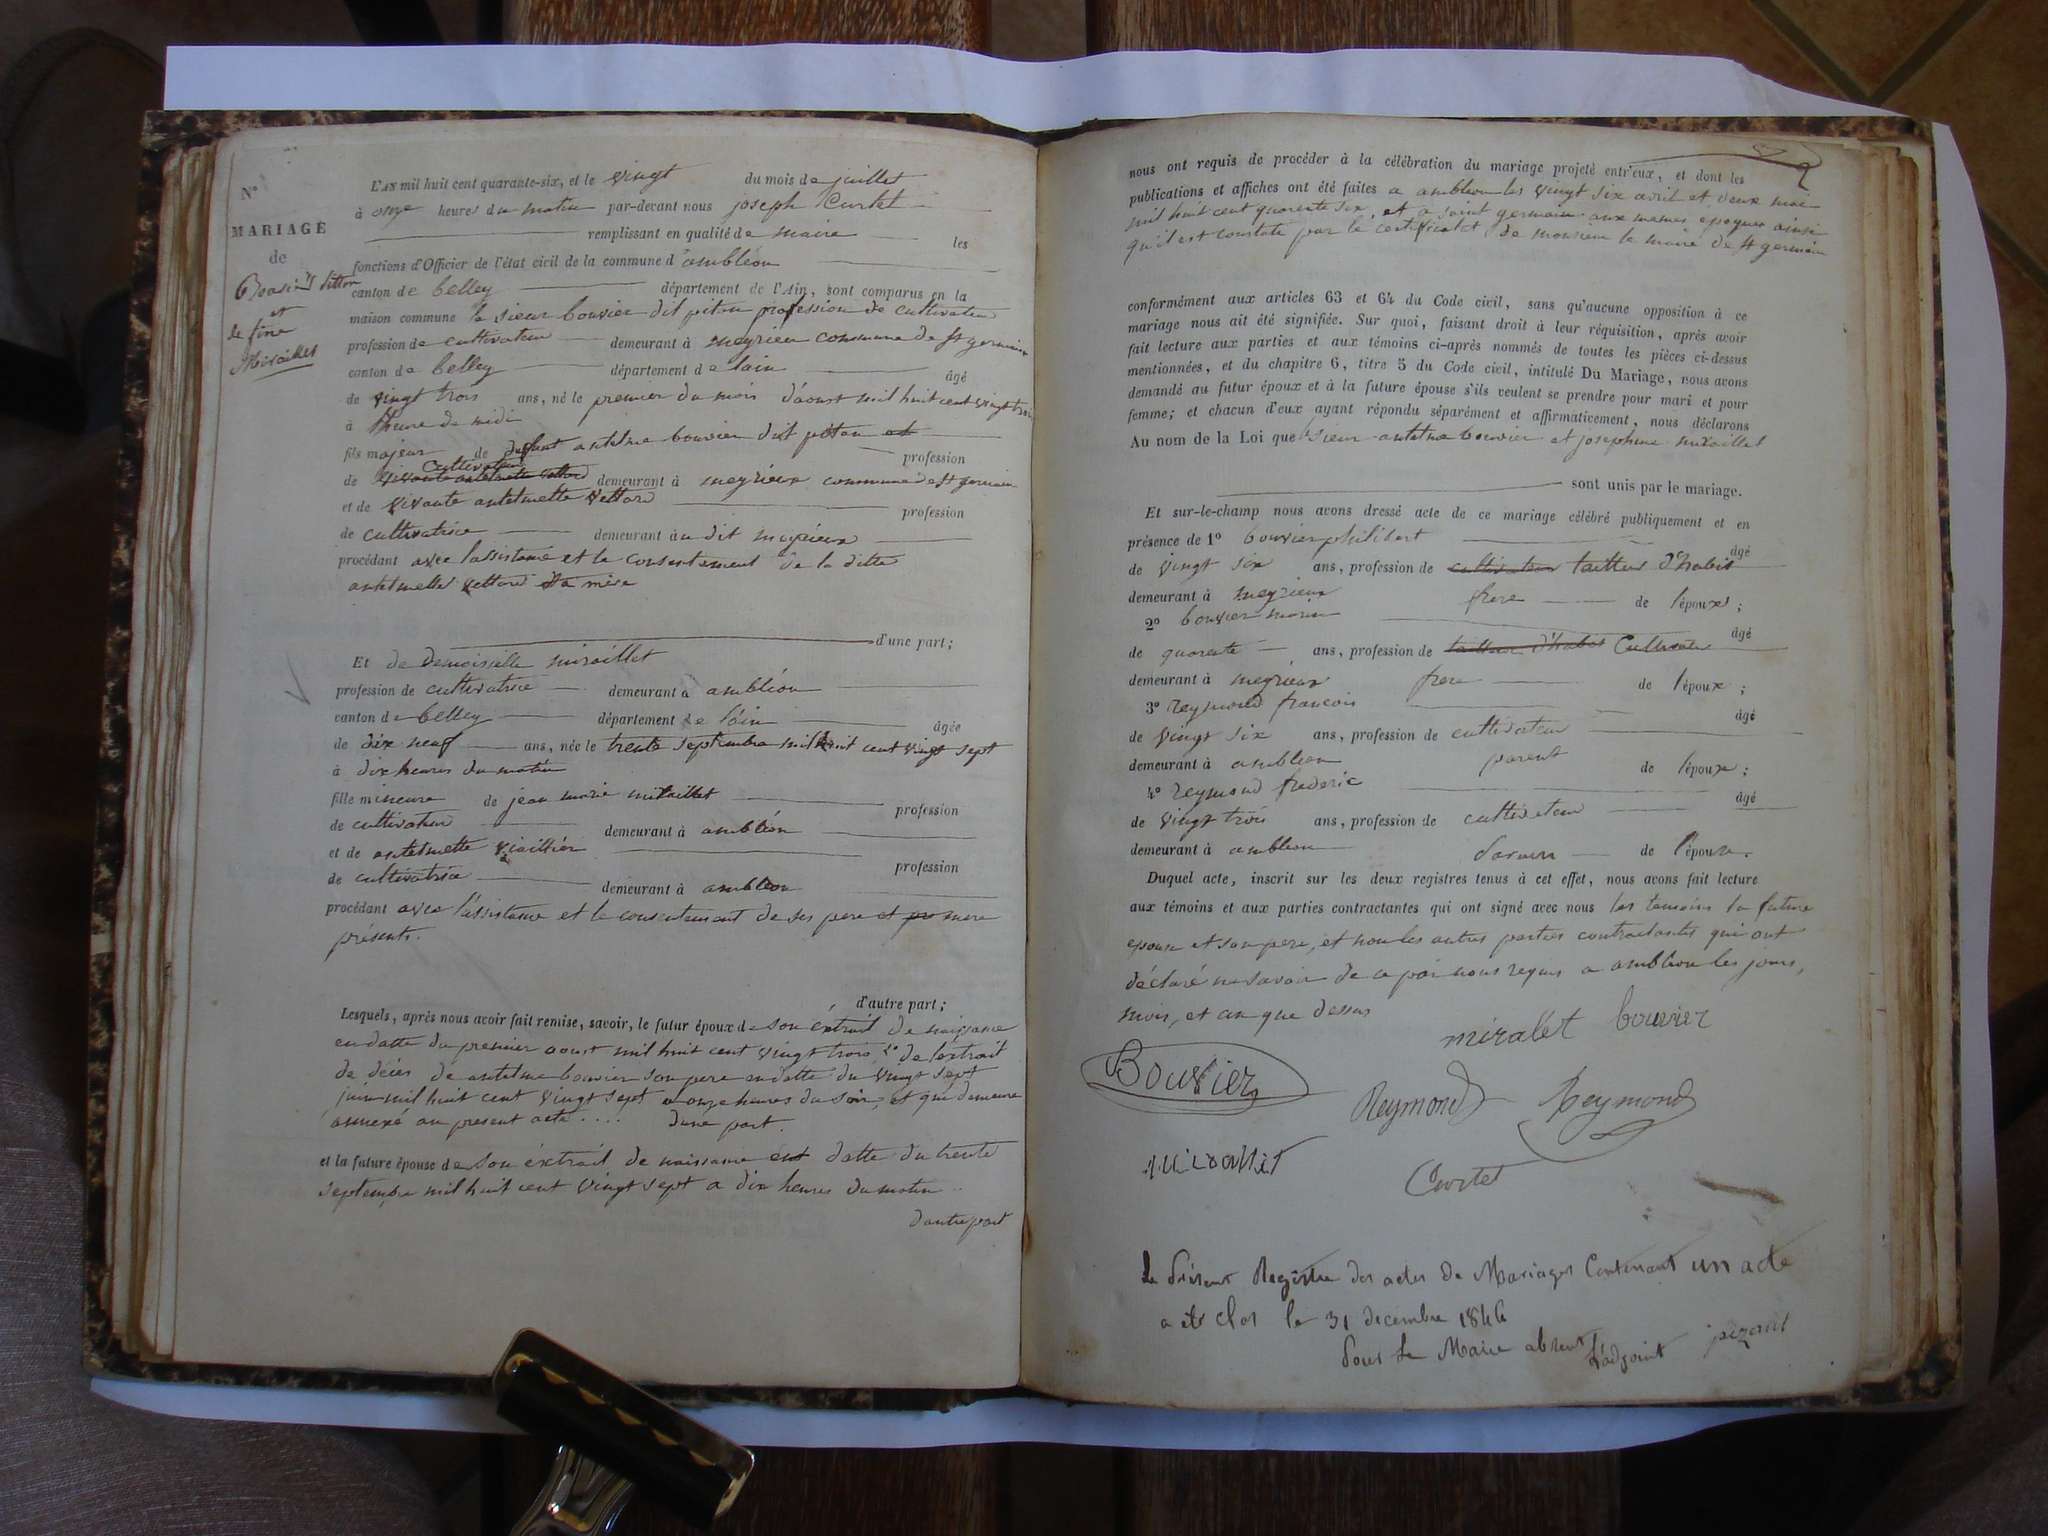 N°
MARIAGE
de
et
L'AN mil huit cent quarante-six, et le vingt du mois de juillet
à onze heures du matin par-devant nous joseph Curtet
remplissant en qualité de maire les
fonctions d'Officier de l'état civil de la commune d'ambléon
canton de belley département de l'Ain, sont comparus en la
maison commune le sieur bouvier dit piton profession de cultivateur
profession de cultivateur demeurant à meyrieu commune de st germain
canton de belley département de lain âgé
de vingt trois ans, né le premier du mois d'áoust mil huit cent vingt trois
à lheure de midi
fils majeur de defunt antelme bouvier dit piton et
profession
de vivante antelmette vettard cultivateur demeurant à meyrieux commune de st germain
et de vivante antelmette vettard profession
de cultivatrice demeurant àu dit meyrieux
procédant avec lassistance et le consentement de la ditte
antelmette vettard sa mère
d'une part;
Et de demoiselle miraillet
profession de cultivatrice demeurant à ambléon
canton de belley département de láin âgée
de dix neuf ans, née le trente septembre mil huit cent vingt sept
à dix heures du matin
fille mineure de jean marie miraillet profession
de cultivateur demeurant à ambléon
et de antelmette profession
de cultivatrice demeurant à ambléon
procédant avec l'assistance et le consentement de ses pere et mere
présents.
d'autre part;
Lesquels, après nous avoir fait remise, savoir, le futur époux de son éxtrait de naissance
en datte du premier aoust mil huit cent vingt trois 2° de léxtrait
de décés de antelme bouvier son pere en datte du vingt sept
juin mil huit cent vingt sept a onze heures du soir, et qui demeure
annexé au present acte .... dune part.
et la future épouse de son éxtrait de naissance en datte du trente
septembre mil huit cent vingt sept a dix heures du matin ..
dautre part
nous ont requis de procéder à la célébration du mariage projeté entr'eux, et dont les
publications et affiches ont été faites a ambléon les vingt six avril et deux mai
mil huit cent quarente six, et a saint germain aux memes epoques ainsi
qu'il est constaté par le certificat de monsieur le maire de st germain
conformément aux articles 63 et 64 du Code civil, sans qu'aucune opposition à ce
mariage nous ait été signifiée. Sur quoi, faisant droit à leur réquisition, après avoir
fait lecture aux parties et aux témoins ci-après nommés de toutes les pièces ci-dessus
mentionnées, et du chapitre 6, titre 5 du Code civil, intitulé Du Mariage, nous avons
demandé au futur époux et à la future épouse s'ils veulent se prendre pour mari et pour
femme; et chacun d'eux ayant répondu séparément et affirmativement, nous déclarons
Au nom de la Loi que sieur antelme bouvier et josephine miraillet
sont unis par le mariage.
Et sur-le-champ nous avons dressé acte de ce mariage célébré publiquement et en
présence de 1° bouvier philibert âgé
de vingt six ans, profession de cultivateur tailleur d'habit
demeurant à meyrieux frere de l'époux;
2° bouvier marin âgé
de quarente ans, profession de tailleur d'habit Cultivateur
demeurant à meyrieux frere de l'époux;
3° reymond francois âgé
de vingt six ans, profession de cultivateur
demeurant à ambleon parent de l'épouse;
4° reymond frederic âgé
de vingt trois ans, profession de cultivateur
demeurant à ambleon de l'épouse.
Duquel acte, inscrit sur les deux registres tenus à cet effet, nous avons fait lecture
aux témoins et aux parties contractantes qui ont signé avec nous les temoins la future
epouse et son pere, et non les autres parties contractantes qui ont
déclaré ne savoir de ce par nous requis a ambléon les jours,
mois, et an que dessus
mirallet bouvier
Bouvier
Reymond Reymond
Curtet
Le présent Registre des actes de Mariages Contenant un acte
a été clos le 31 decembre 1846
Pour le Maire absent l'adjoint